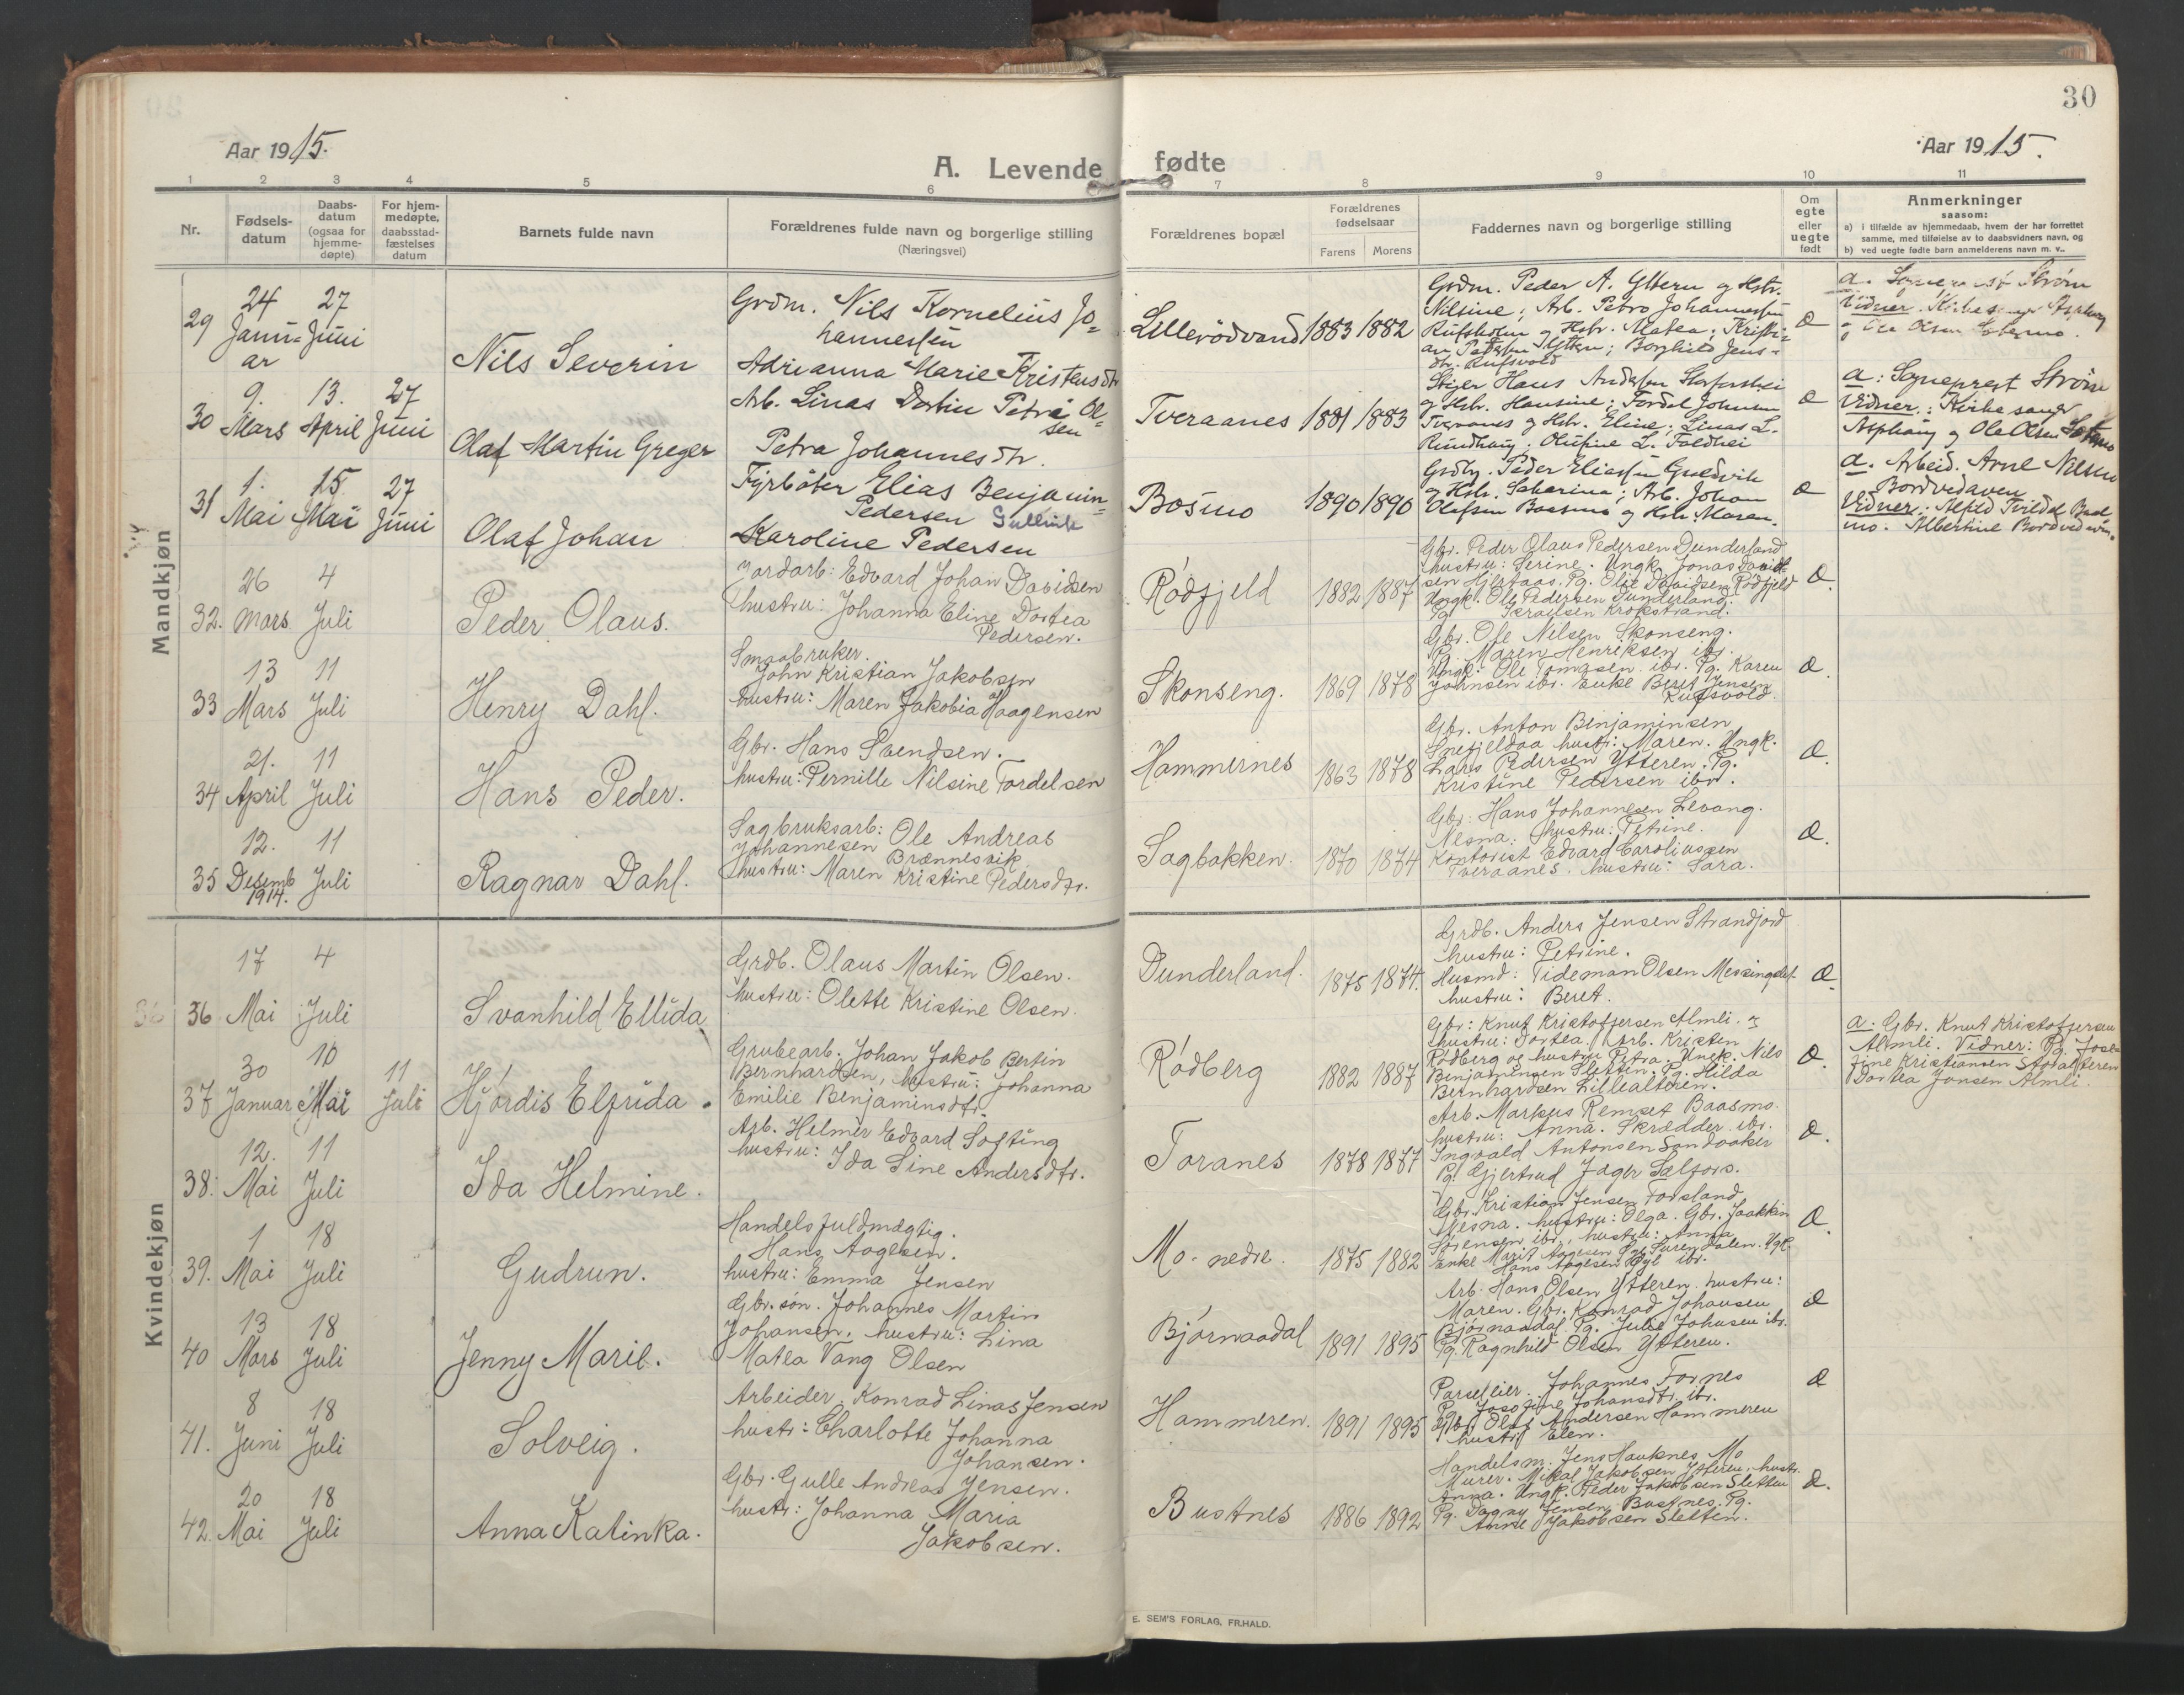 30
Aar 1915.
A. Levende fødte
Aar 1915.
1 2 3 4 5 6 7 8 9 10 11
Nr.
Fødsels-
datum
Daabs-
datum
(ogsaa for
hjemme-
døpte)
For hjem-
medøpte,
daabsstad-
fæstelses
datum
Barnets fulde navn
Forældrenes fulde navn og borgerlige stilling
(Næringsvei)
Forældrenes bopæl
Forældrenes
fødselsaar
Farens Morens
Faddernes navn og borgerlige stilling
Om
egte
eller
uegte
født
Anmerkninger
saasom:
a) i tilfælde av hjemmedaab, hvem der har forrettet
samme, med tilføielse av to daabsvidners navn, og
b) ved uegte fødte barn anmelderens navn m. v..
Mandkjøn
29
24 Januar
27 Juni
Nils Severin
Grdm. Nils Kornelius Jo=
hannessen
Adrianna Marie Kristensdtr
Lillerödvand 1883 1882
Grdm. Peder A. Yttern og Hstr.
Nilsine; Arb. Petro Johannessen
Rufsholm og Hstr. Matea; Kristi-
an Yttern; Borghild Jens-
dtr. Rufsvold
Æ
a. Strøm
Vidner. Asphaug
Ole Olsen
30
9. Mars
13. April
27 Juni
Olaf Martin Greger
Arb. Linas Petra Ol=
sen
Petra Johannesdtr.
Tveraanes 1881 1883
Stiger Hans Andersen
og Hstr. Hansine; Tordel Johnsen
Tveraanes og Hstr. Eline; Linas L.
Rundhaug; Olufine L.
Æ
a: Sogneprest Strøm
Vidner: Kirkesanger
Asphaug og Ole Olsen
31
1. Mai
15. Mai
27 Juni
Olaf Johan
Fyrbøter Elias Benjamin=
Pedersen
Karoline Pedersen
Bosmo 1890 1890
Peder Eliassen
og Hstr. Arb. Johan
Olafsen Baasmo og Hstr. Maren.
Æ
a. Arbeid. Arne Nilsen
Bordvedaven
Vidner: Alfild
mo. Albertine
32.
26 Mars
4 Juli
Peder Olaus.
Jordarb: Edvard Johan Davidsen
hustru: Johanna Eline Dortea
Pedersen.
Rödfjeld 1882 1887
Gbr. Peder Olaus Pedersen Dunderland
hustru: Serine. Ungk. Jonas David-
sen Hjertaas. Pg. Olie Davidsen Rødfjeld
Ungk. Ole Pedersen Dunderland.
Pg. Israelsen Krokstrand.
Æ.
33
13 Mars
11 Juli
Henry Dahl.
Smaabruker.
John Kristian Jakobsen
hustru: Maren Jakobia Haagensen
Skonseng. 1869 1878
Gbr. Ole Nilsen Skonseng.
Pg. Maren Henriksen ibr.
Ungk. Ole Tomasen ibr. Pg. Karen
Johnsen ibr. Enke Beret Jensen
Rufsvold.
Æ.
34
21. April
11 Juli
Hans Peder.
Gbr. Hans Svendsen.
hustru: Pernille Nilsine Tordelsen
Hammernes 1863 1878
Gbr. Anton Benjaminsen
Snefjeldaa hustr: Maren. Ungk.
Lars Pedersen Ytteren. Pg.
Kristine Pedersen ibr.
Æ.
35
12. Desemb 1914.
11 Juli
Ragnar Dahl.
Sagbruksarb: Ole Andreas
Johannesen Brænnesvik
hustru: Maren Kristine Pedersdtr.
Sagbakken. 1870 1874
Gbr. Hans Johannesen Levang.
Nesna. hustru: Petrine.
Kontorist Edvard Caroliussen
Tveraanes. hustru: Sara.
Æ.
Kvindekjøn
36
17 Mai
4 Juli
Svanhild Ellida
Grdb. Olaus Martin Olsen.
hustru: Olette Kristine Olsen.
Dunderland. 1875 1874.
Grdb. Anders Jensen Strandjord
hustru: Petrine.
Husmd: Tideman Olsen Messingslet.
hustru: Beret.
Æ
37
30 Januar
10 Mai
11 Juli
Hjördis Elfrida.
Grubearb. Johan Jakob Bertin
Bernhardsen, hustru: Johanna
Emilie Benjaminsdtr.
Rödberg 1882 1887
Gbr: Knut Kristoffersen Almli. og
hustru: Dortea. Arb. Kristen
Rødberg og hustru Petra. Ungk. Nils
Benjaminsen Sletten. Pg. Hilda
Bernhardsen Lillealteren.
Æ.
a: Gbr. Knut Kristoffersen
Altmli. Vidner: Pg. Jose-
fine Kristiansen Storalteren
Dortea Jonsen Almli.
38.
12. Mai
11 Juli
Ida Helmine.
Arb. Helmer Edvard Softing
hustru: Ida Line Andersdtr.
Toranes 1878 1877
Arb. Markus Remset Baasmo.
hustru: Anna. Skrædder ibr.
Ingvald Antonsen Sandvaker
Pg. Gjertrud Jager Selfors.
Æ.
39.
1 Mai
18 Juli
Gudrun.
Handelsfuldmægtig.
Hans Aagesen.
hustru: Emma Jensen
Mo-nedre. 1875 1882
Gbr. Kristian Jensen Forsland
Nesna. hustru: Olga. Gbr. Joakkim
Sörensen ibr., hustru: Anna
Enke Marit Aagesen Surendalen. Ugk.
Hans Aagesen ibr.
Æ.
40
13 Mars
18 Juli
Jenny Marie.
Gbr.søn. Johannes Martin
Johansen. hustru: Lina
Matea Vang Olsen
Björnaadal 1891 1895
Arb. Hans Olsen Ytteren. hustru:
Maren. Gbr. Konrad Johansen
Bjørnaadal. Pg. Julie Johnsen ibr.
Pg. Ragnhild Olsen Ytteren.
Æ
41.
8 Juni
18 Juli
Solveig.
Arbeider. Konrad Linas Jensen
hustr: Charlotte Johanna
Johansen.
Hammeren. 1891 1895
Parsellier. Johannes Tornes
Pg. Josefine Johansdtr. ibr.
Gbr. Olaf Andersen Hammeren
hustru Elen.
Æ
42.
20 Mai
18 Juli
Anna Katinka.
Gbr. Gulle Andreas Jensen.
hustr: Johanna Maria
Jakobsen.
Bustnes 1886 1892
Handelsm. Jens Hauknes Mo
Murer. Mikal Jakobsen Ytteren. hustr.
Anna. Ungk. Peder Jakobsen Sletten
Pg. Dagny Jensen Bustnes. Pg.
Anne Jakobsen Sletten.
Æ.
E. SEM'S FORLAG, FR.HALD.